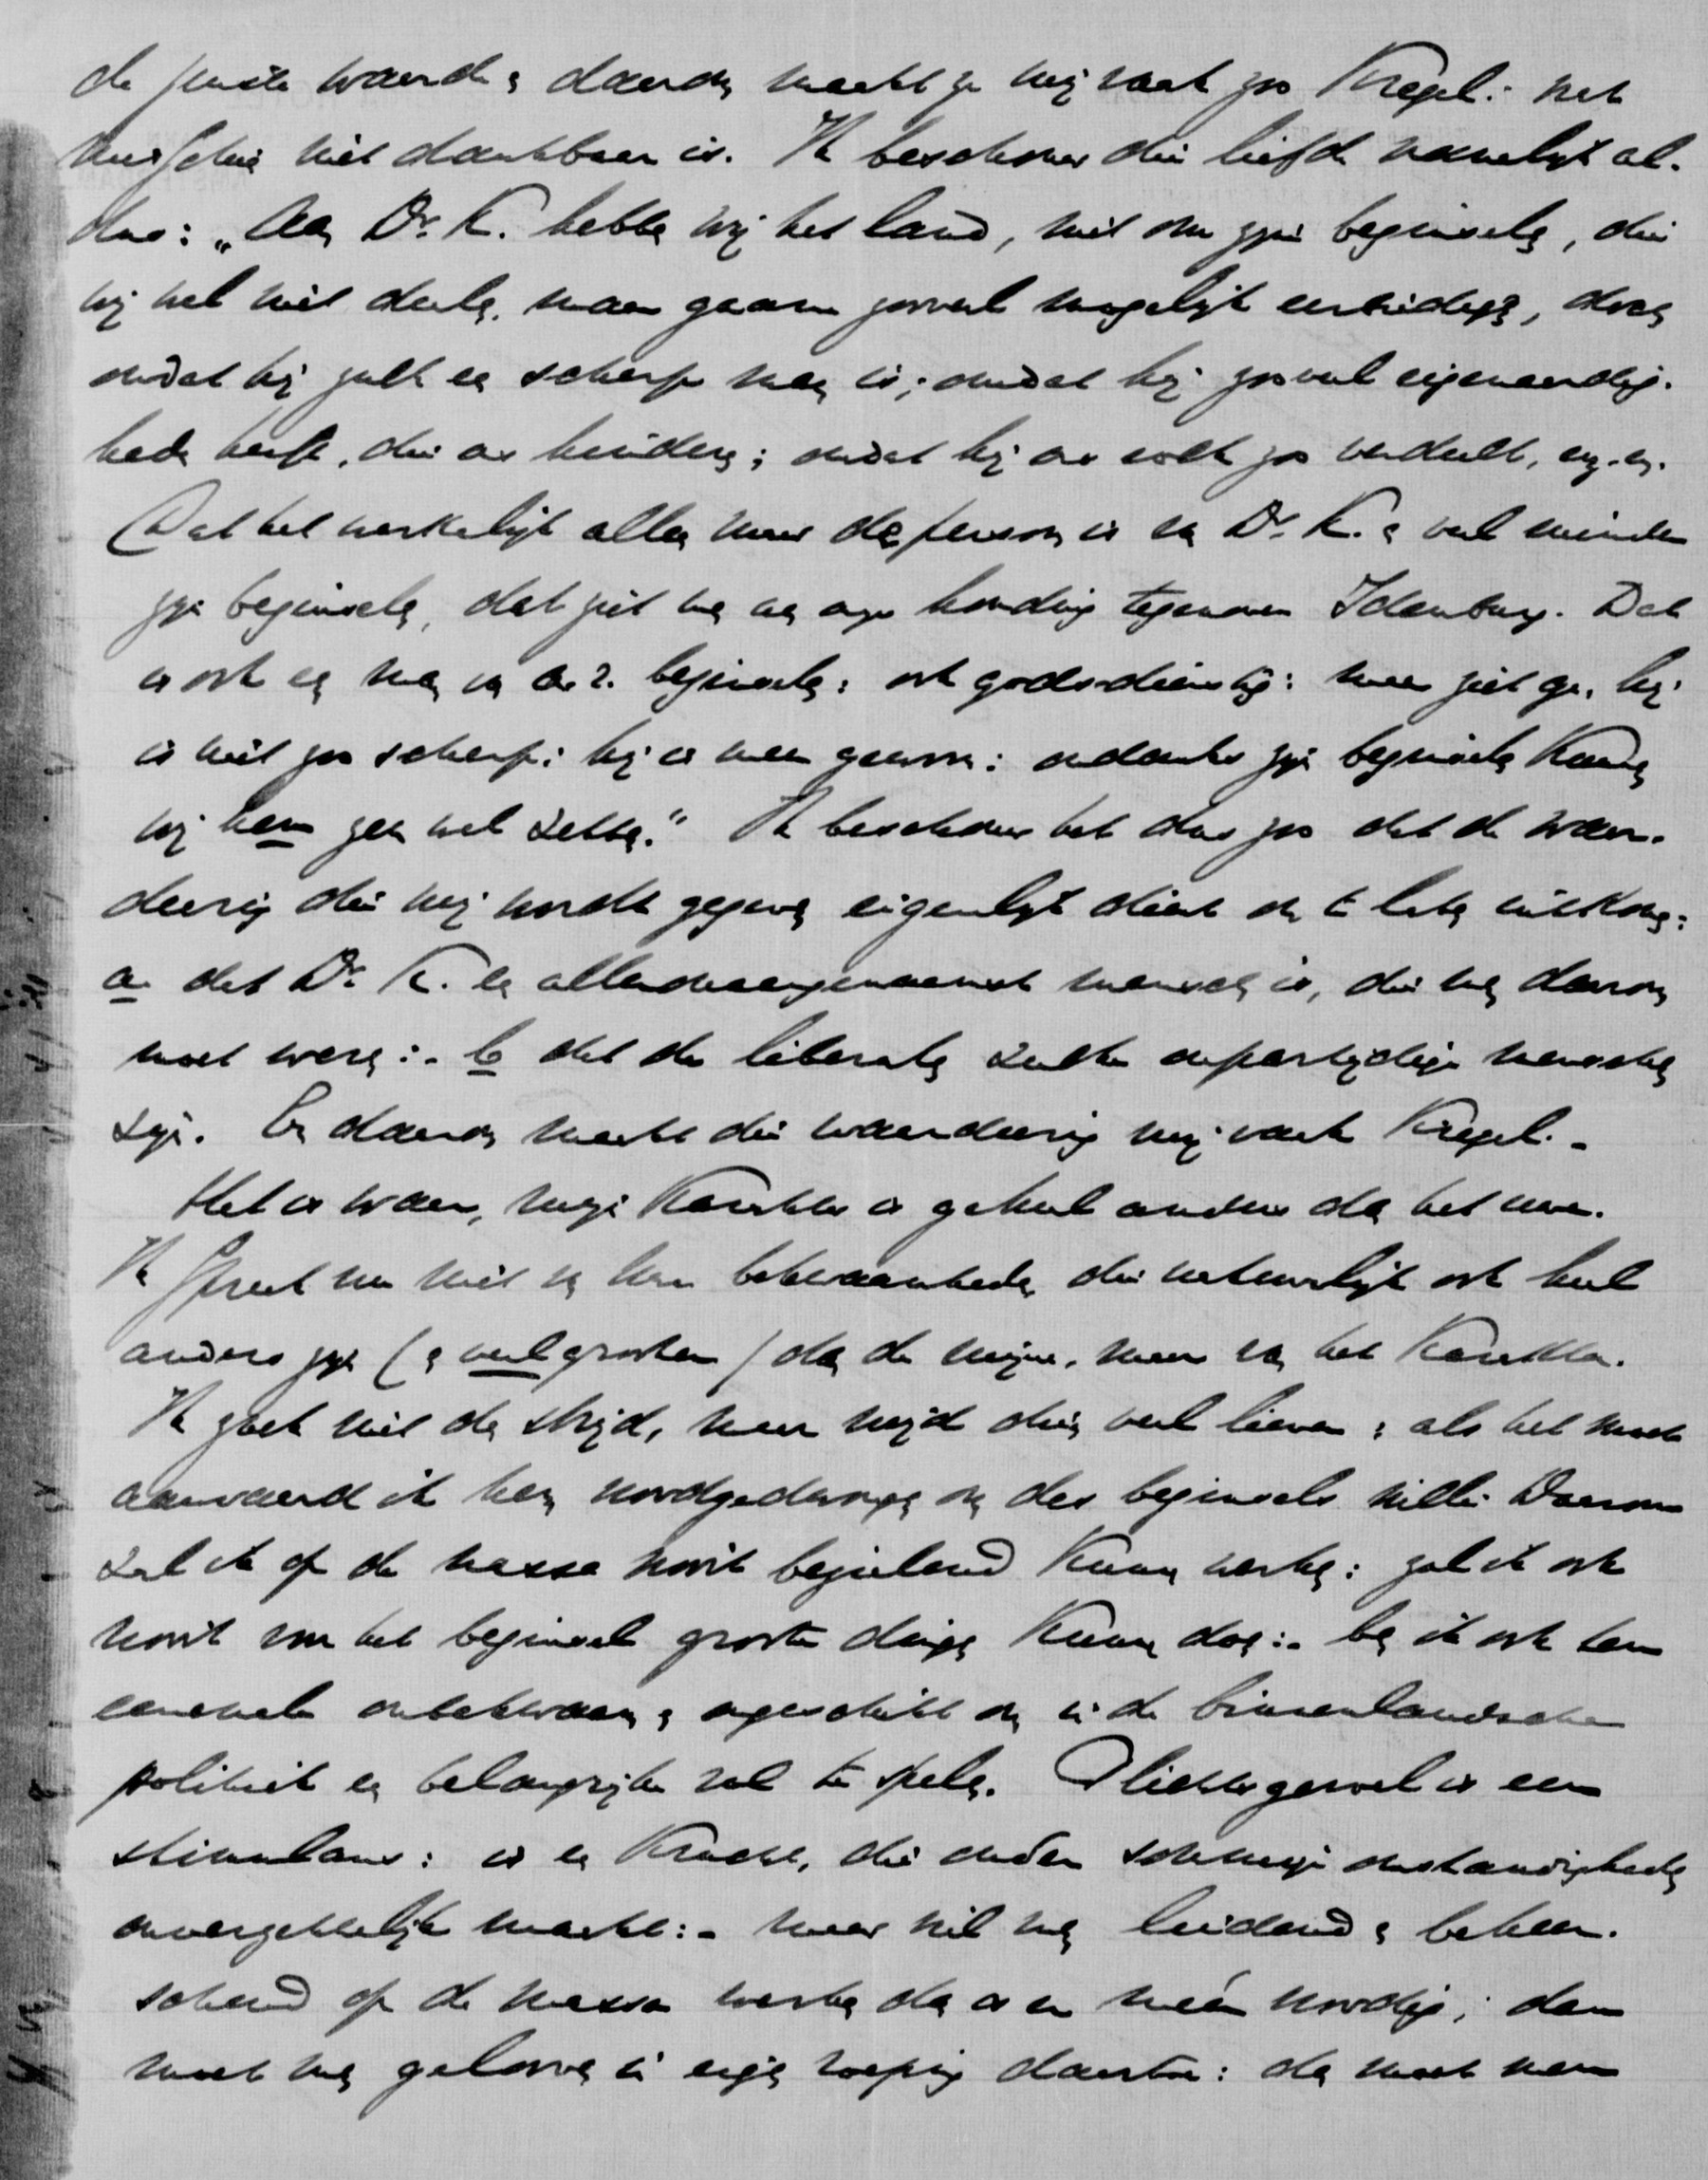 de juiste waarde; daarom maakt ze mij vaak zoo kregel: het
misschien niet dankbaar is. Ik beschouw die liefde namelijk al-
dus: „Aan Dr. K. hebben wij het land, niet om zijn beginselen, die
wij wel niet deelen, maar gaarne zooveel mogelijk eerbiedigen, doch
omdat hij zulk een scherp man is; omdat hij zooveel eigenaardig-
heden heeft, die ons hinderen; omdat hij ons volk zoo verdeelt, enz. enz.
Dat het werkelijk alleen maar de persoon is van Dr. K. en veel minder
zijn beginselen, dat ziet men aan onze houding tegenover Idenburg. Dat
is ook een man van a.r. beginselen: ook godsdienstig: maar ziet ge, hij
is niet zoo scherp: hij is meer gewoon: ondanks zijn beginselen kunnen
wij hem zeer wel zetten." Ik beschouw het dus zoo dat de waar-
deering die mij wordt gegeven eigenlijk dient om te laten uitkomen:
a. dat Dr. K. een alleronaangenaamst mensch is, die men daarom
moet weren:- b dat de liberalen zulke onpartijdige menschen
zijn. En daarom maakt die waardeering mij vaak kregel.-
Het is waar, mijn karakter is geheel anders dan het uwe.
Ik spreek nu niet van uw bekwaamheden die natuurlijk ook heel
anders zijn (en veel grooter) dan de mijne, maar van het karakter.
Ik zoek niet den strijd, maar mijd dien veel liever; als het moet
aanvaard ik hem noodgedwongen om des beginsels wille. Daarom
zal ik op de massa nooit bezielend kunnen werken: zal ik ook
nooit voor het beginsel groote dingen kunnen doen:- ben ik ook ten
eenenmale onbekwaam en ongeschikt om in de binnenlandsche
politiek een belangrijke rol te spelen. Plichtsgevoel is een
stimulans: is een kracht, die onder sommige omstandigheden
onverzettelijk maakt:- maar wil men leidend en beheer-
schend op de massa werken dan is er méér noodig; dan
moet men gelooven in eigen roeping daartoe: dan moet men